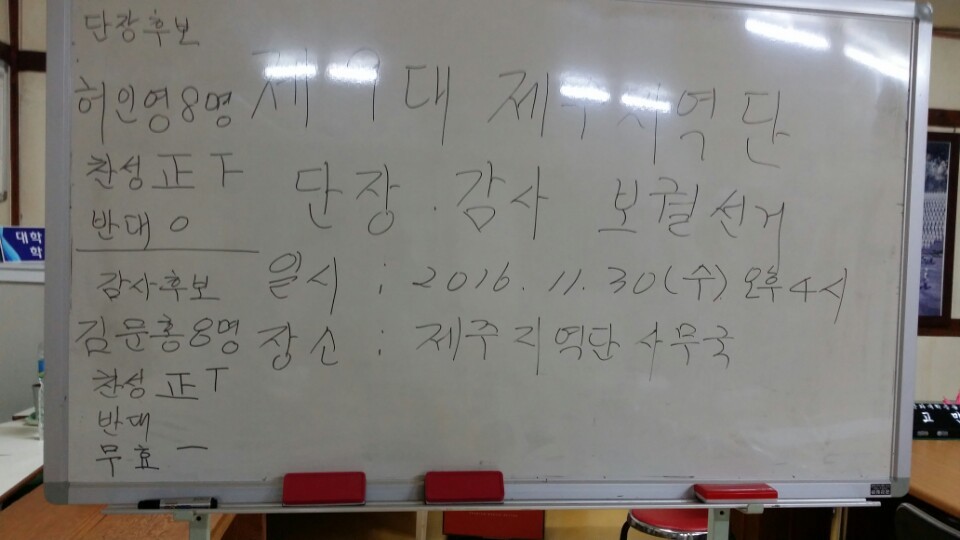 단장후보
허인영8명
찬성 正 下
반대 0
감사후보
김문홍8명
찬성 正 T
반대
무효 一
제 9대 제주지역단
단장. 감사 보궐선거
일시 : 2016. 11. 30(수) 오후4시
장소 : 제주지역단 사무국
대학
학